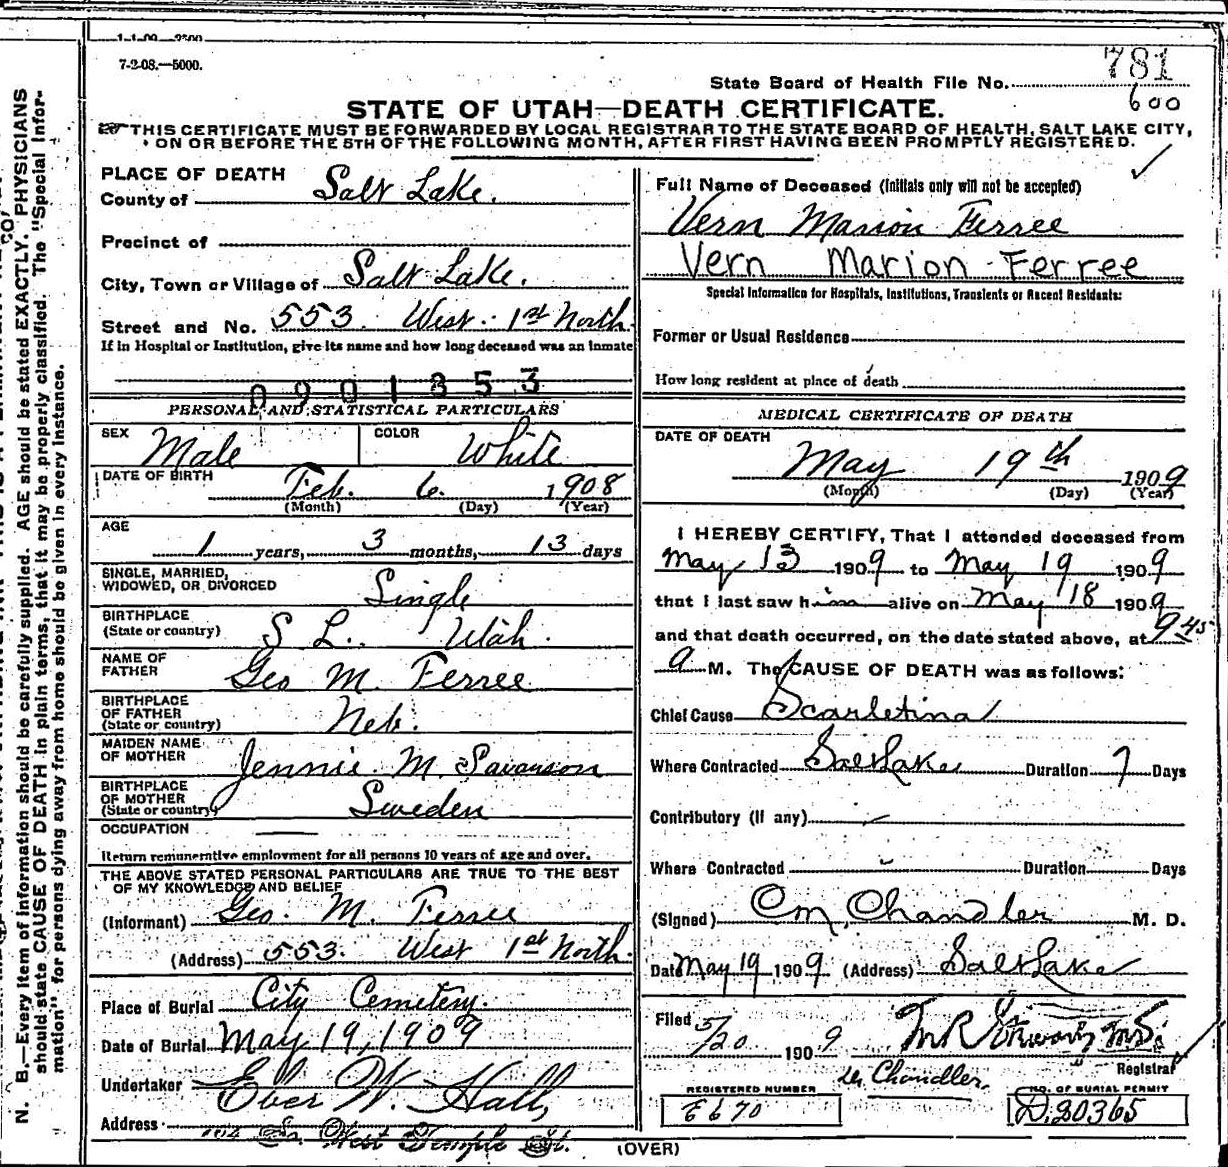 7-2-08.—5000.
781
State Board of Health File No.
600
STATE OF UTAH—DEATH CERTIFICATE.
THIS CERTIFICATE MUST BE FORWARDED BY LOCAL REGISTRAR TO THE STATE BOARD OF HEALTH, SALT LAKE CITY,
ON OR BEFORE THE 5TH OF THE FOLLOWING MONTH, AFTER FIRST HAVING BEEN PROMPTLY REGISTERED.
PLACE OF DEATH
County of Salt Lake.
Precinct of
City, Town or Village of Salt Lake.
Street and No. 553. West 1st North
If in Hospital or Institution, give its name and how long deceased was an inmate
0901353
PERSONAL AND STATISTICAL PARTICULARS
SEX Male COLOR White
DATE OF BIRTH Feb. 6. 1908
(Month) (Day) (Year)
AGE
1 years, 3 months, 13 days
SINGLE, MARRIED,
WIDOWED, OR DIVORCED Single
BIRTHPLACE
(State or country) S L. Utah.
NAME OF
FATHER Geo M. Ferree
BIRTHPLACE
OF FATHER
(State or country) Neb.
MAIDEN NAME
OF MOTHER Jennie M. Swanson
BIRTHPLACE
OF MOTHER
(State or country) Sweden
OCCUPATION
Return remunerative employment for all persons 10 years of age and over.
THE ABOVE STATED PERSONAL PARTICULARS ARE TRUE TO THE BEST
OF MY KNOWLEDGE AND BELIEF
(Informant) Geo. M. Ferree
(Address) 553. West 1st North.
Place of Burial City Cemetery.
Date of Burial May 19, 1909
Undertaker Eber W. Hall,
Address So. West Temple St.
Full Name of Deceased (Initials only will not be accepted)
Vern Marion Ferree
Vern Marion Ferree
Special Information for Hospitals, Institutions, Transients or Recent Residents:
Former or Usual Residence
How long resident at place of death
MEDICAL CERTIFICATE OF DEATH
DATE OF DEATH
May 19th 1909
(Month) (Day) (Year)
I HEREBY CERTIFY, That I attended deceased from
May 13 1909 to May 19 1909
that I last saw him alive on May 18 1909
and that death occurred, on the date stated above, at 9 45
a M. The CAUSE OF DEATH was as follows:
Chief Cause Scarletina
Where Contracted Salt Lake Duration 7 Days
Contributory (If any)
Where Contracted Duration Days
(Signed) C M, Chandler M. D.
Date May 19 1909 (Address) Salt Lake
Filed 5/20 1909
Registrar
Chandler.
REGISTERED NUMBER
E670
NO. OF BURIAL PERMIT
D.20365
(OVER)
N. B.—Every item of information should be carefully supplied. AGE should be stated EXACTLY. PHYSICIANS
should state CAUSE OF DEATH in plain terms, that it may be properly classified. The "Special Infor-
mation" for persons dying away from home should be given in every instance.